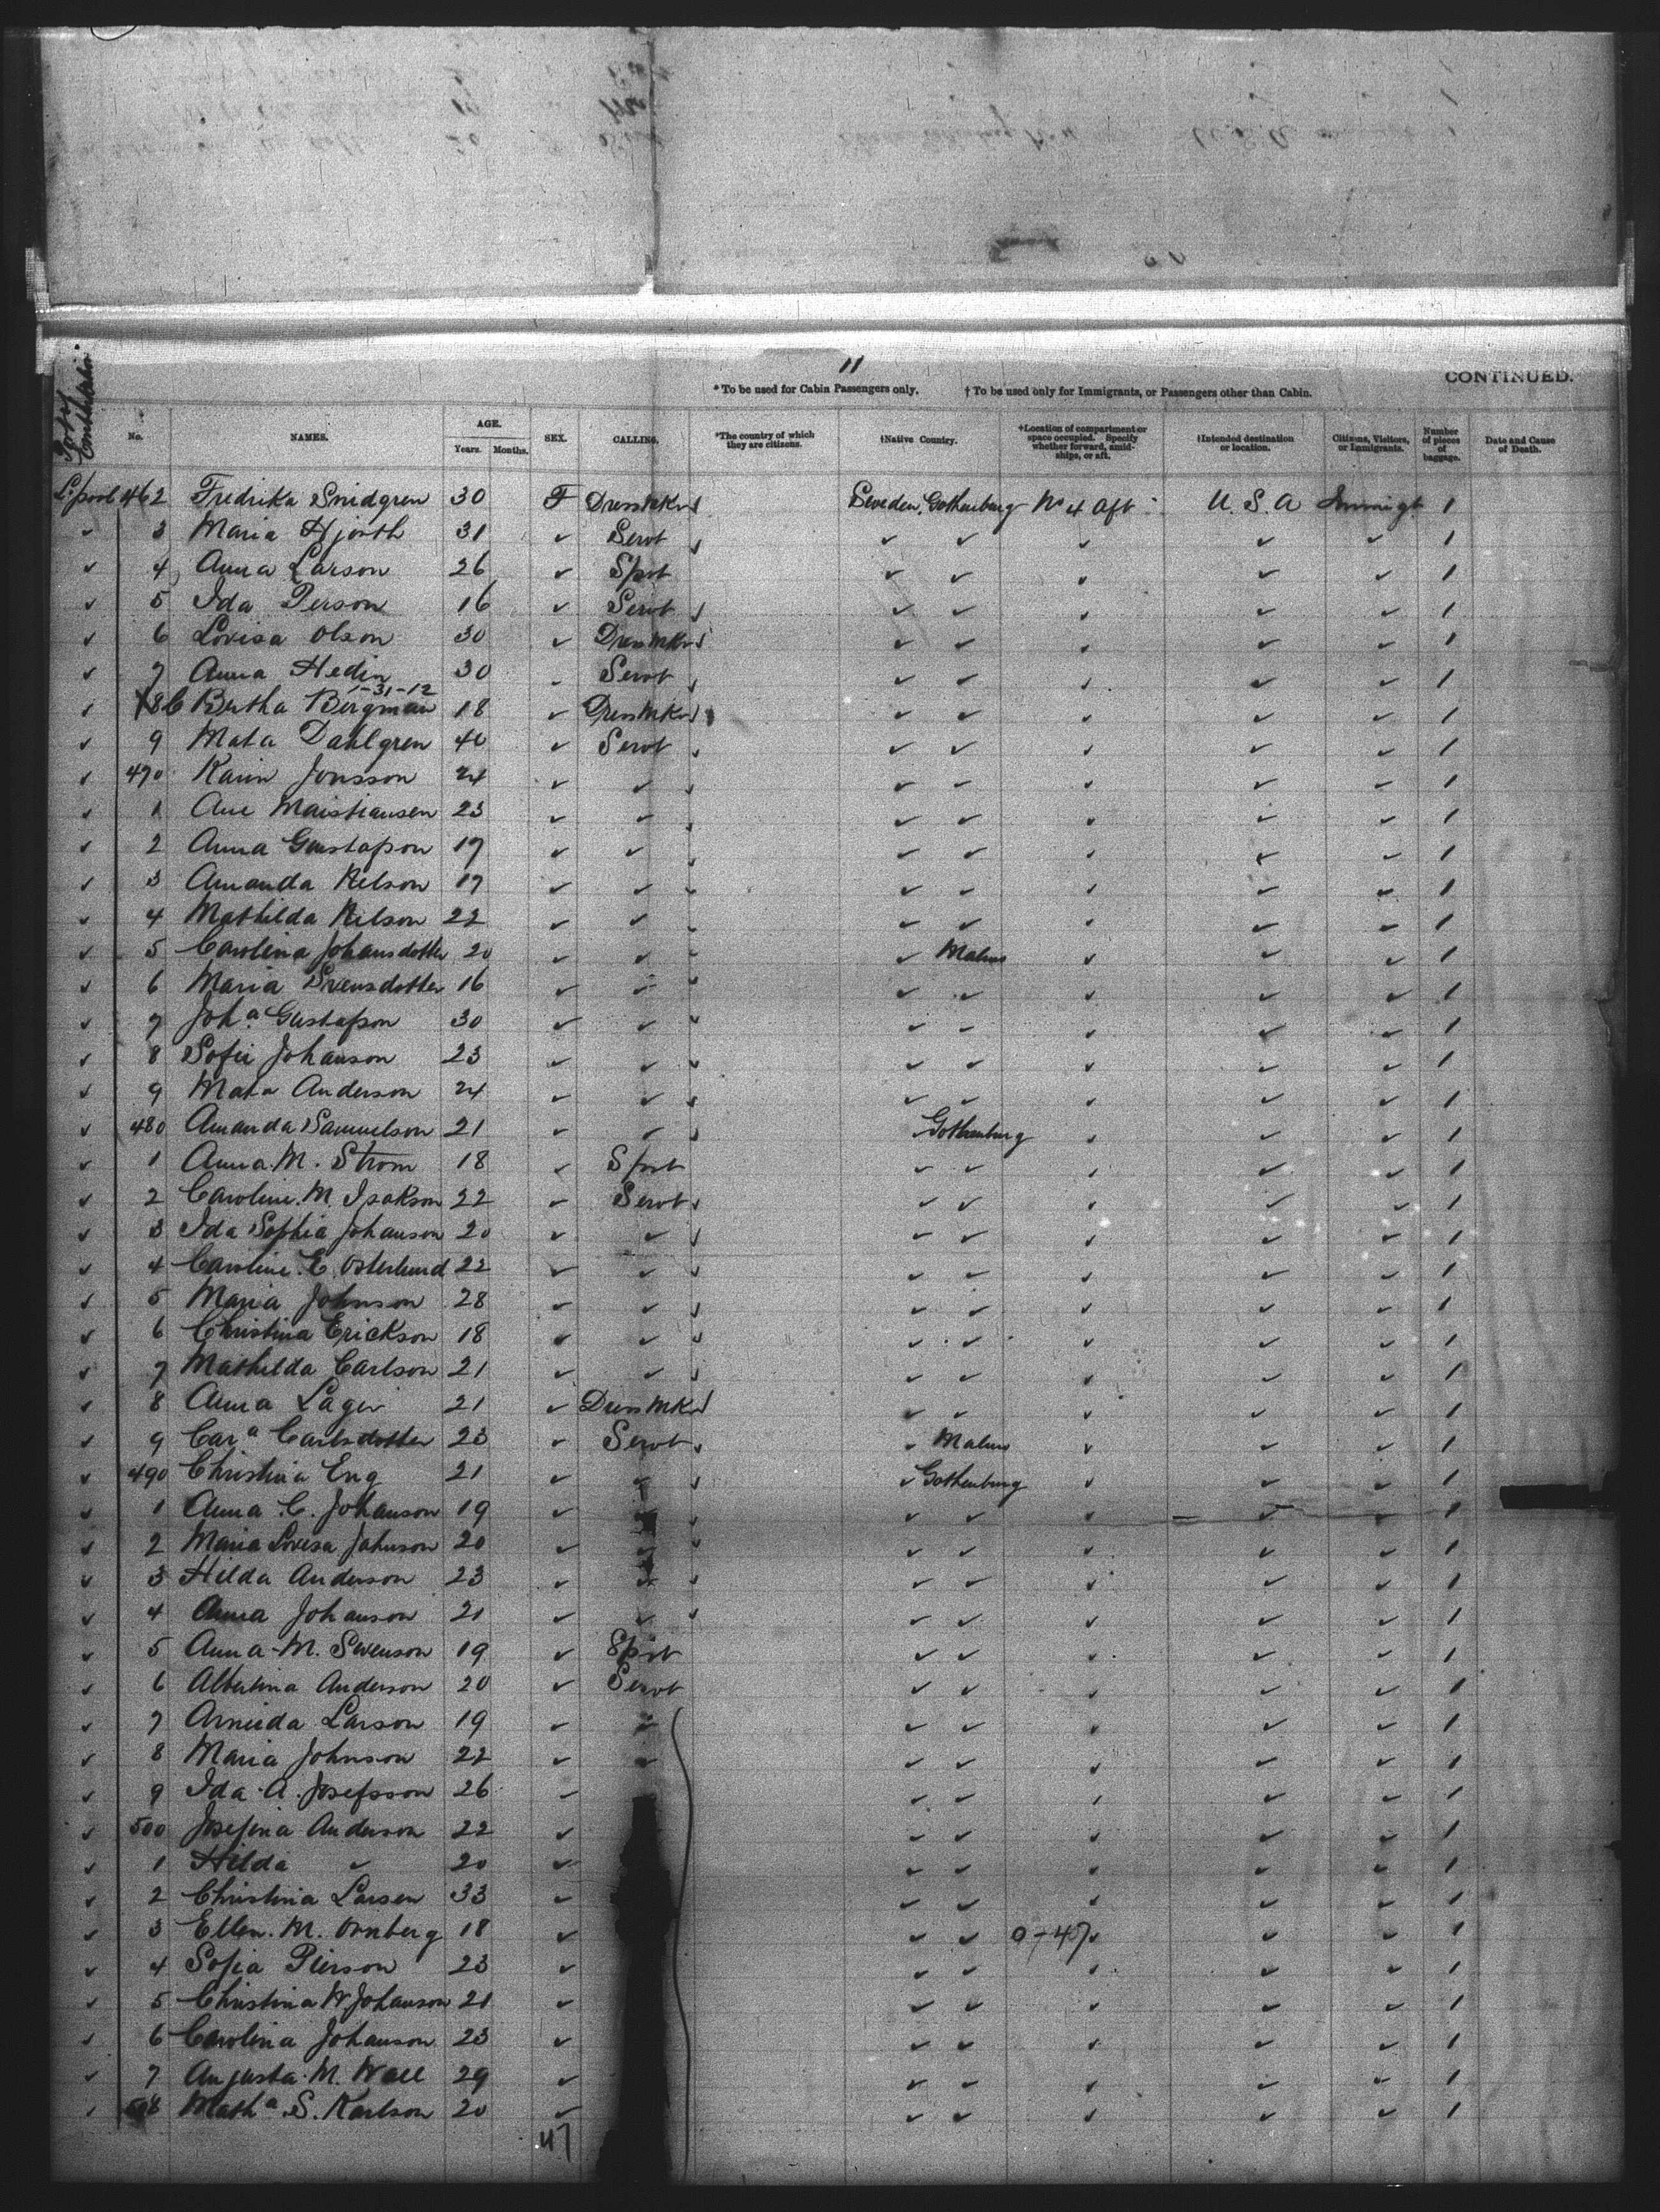 11
* To be used for Cabin Passengers only. † To be used only for Immigrants, or Passengers other than Cabin. CONTINUED.
Port of Embarkation No. NAMES. AGE. Years. Months. SEX. CALLING. *The country of which they are citizens. †Native Country. †Location of compartment or space occupied. Specify whether forward, amidships, or aft. †Intended destination or location. Citizens, Visitors, or Immigrants. Number of pieces of baggage. Date and Cause of Death.
L.pool 462 Fredrika Smidgren 30 F DressMkr Sweden, Gothenburg No 4 Aft U.S.A Immigt 1
✓ 3 Maria Hjorth 31 ✓ Servt ✓ ✓ ✓ ✓ ✓ 1
✓ 4 Anna Larson 26 ✓ Spst ✓ ✓ ✓ ✓ ✓ 1
✓ 5 Ida Person 16 ✓ Servt ✓ ✓ ✓ ✓ ✓ 1
✓ 6 Lovisa Olson 30 ✓ DressMkr ✓ ✓ ✓ ✓ ✓ 1
✓ 7 Anna Hedin 30 ✓ Servt ✓ ✓ ✓ ✓ ✓ 1
1-31-12
✓ X8 C Bertha Bergman 18 ✓ DressMkr ✓ ✓ ✓ ✓ ✓ 1
✓ 9 Mata Dahlgren 40 ✓ Servt ✓ ✓ ✓ ✓ ✓ 1
✓ 470 Karin Jonsson 24 ✓ ✓ ✓ ✓ ✓ ✓ ✓ 1
✓ 1 Ane Maistiansen 23 ✓ ✓ ✓ ✓ ✓ ✓ ✓ 1
✓ 2 Anna Gustafson 17 ✓ ✓ ✓ ✓ ✓ ✓ ✓ 1
✓ 3 Amanda Nelson 17 ✓ ✓ ✓ ✓ ✓ ✓ ✓ 1
✓ 4 Mathilda Nilson 22 ✓ ✓ ✓ ✓ ✓ ✓ ✓ 1
✓ 5 Carolina Johansdotter 20 ✓ ✓ ✓ Malmo ✓ ✓ ✓ 1
✓ 6 Maria Svensdotter 16 ✓ ✓ ✓ ✓ ✓ ✓ ✓ 1
✓ 7 Joha Gustafson 30 ✓ ✓ ✓ ✓ ✓ ✓ ✓ 1
✓ 8 Sofie Johanson 23 ✓ ✓ ✓ ✓ ✓ ✓ ✓ 1
✓ 9 Mata Anderson 24 ✓ ✓ ✓ ✓ ✓ ✓ ✓ 1
✓ 480 Amanda Samuelson 21 ✓ ✓ ✓ Gothenburg ✓ ✓ ✓ 1
✓ 1 Anna M. Strom 18 ✓ Spst ✓ ✓ ✓ ✓ ✓ 1
✓ 2 Caroline M. Isakson 22 ✓ Servt ✓ ✓ ✓ ✓ ✓ 1
✓ 3 Ida Sophia Johanson 20 ✓ ✓ ✓ ✓ ✓ ✓ ✓ 1
✓ 4 Caroline E. Osterlund 22 ✓ ✓ ✓ ✓ ✓ ✓ ✓ 1
✓ 5 Maria Johnson 28 ✓ ✓ ✓ ✓ ✓ ✓ ✓ 1
✓ 6 Christina Erickson 18 ✓ ✓ ✓ ✓ ✓ ✓ ✓ 1
✓ 7 Mathilda Carlson 21 ✓ ✓ ✓ ✓ ✓ ✓ ✓ 1
✓ 8 Anna Lager 21 ✓ DressMkr ✓ ✓ ✓ ✓ ✓ 1
✓ 9 Cara Carlsdotter 23 ✓ Servt ✓ Malmo ✓ ✓ ✓ 1
✓ 490 Christina Eng 21 ✓ ✓ ✓ Gothenburg ✓ ✓ ✓ 1
✓ 1 Anna C. Johanson 19 ✓ ✓ ✓ ✓ ✓ ✓ 1
✓ 2 Maria Lovisa Johnson 20 ✓ ✓ ✓ ✓ ✓ ✓ ✓ 1
✓ 3 Hilda Anderson 23 ✓ ✓ ✓ ✓ ✓ ✓ ✓ 1
✓ 4 Anna Johanson 21 ✓ ✓ ✓ ✓ ✓ ✓ ✓ 1
✓ 5 Anna M. Swenson 19 ✓ Spst ✓ ✓ ✓ ✓ ✓ 1
✓ 6 Albertina Anderson 20 ✓ Servt ✓ ✓ ✓ ✓ ✓ 1
✓ 7 Larson 19 ✓ ✓ ✓ ✓ ✓ ✓ ✓ 1
✓ 8 Maria Johnson 22 ✓ ✓ ✓ ✓ ✓ ✓ ✓ 1
✓ 9 Ida A. Josefsson 26 ✓ ✓ ✓ ✓ ✓ ✓ 1
✓ 500 Josefina Anderson 22 ✓ ✓ ✓ ✓ ✓ ✓ 1
✓ 1 Hilda ✓ 20 ✓ ✓ ✓ ✓ ✓ ✓ 1
✓ 2 Christina Larsen 33 ✓ ✓ ✓ ✓ ✓ ✓ 1
✓ 3 Ellen M. Ornberg 18 ✓ ✓ ✓ 0-47 ✓ ✓ ✓ 1
✓ 4 Sofia Pierson 23 ✓ ✓ ✓ ✓ ✓ ✓ 1
✓ 5 Christina W. Johanson 21 ✓ ✓ ✓ ✓ ✓ ✓ 1
✓ 6 Carolina Johanson 23 ✓ ✓ ✓ ✓ ✓ ✓ 1
✓ 7 Augusta M. Wall 29 ✓ ✓ ✓ ✓ ✓ ✓ 1
✓ 508 Matha S. Karlson 20 ✓ ✓ ✓ ✓ ✓ ✓ 1
47